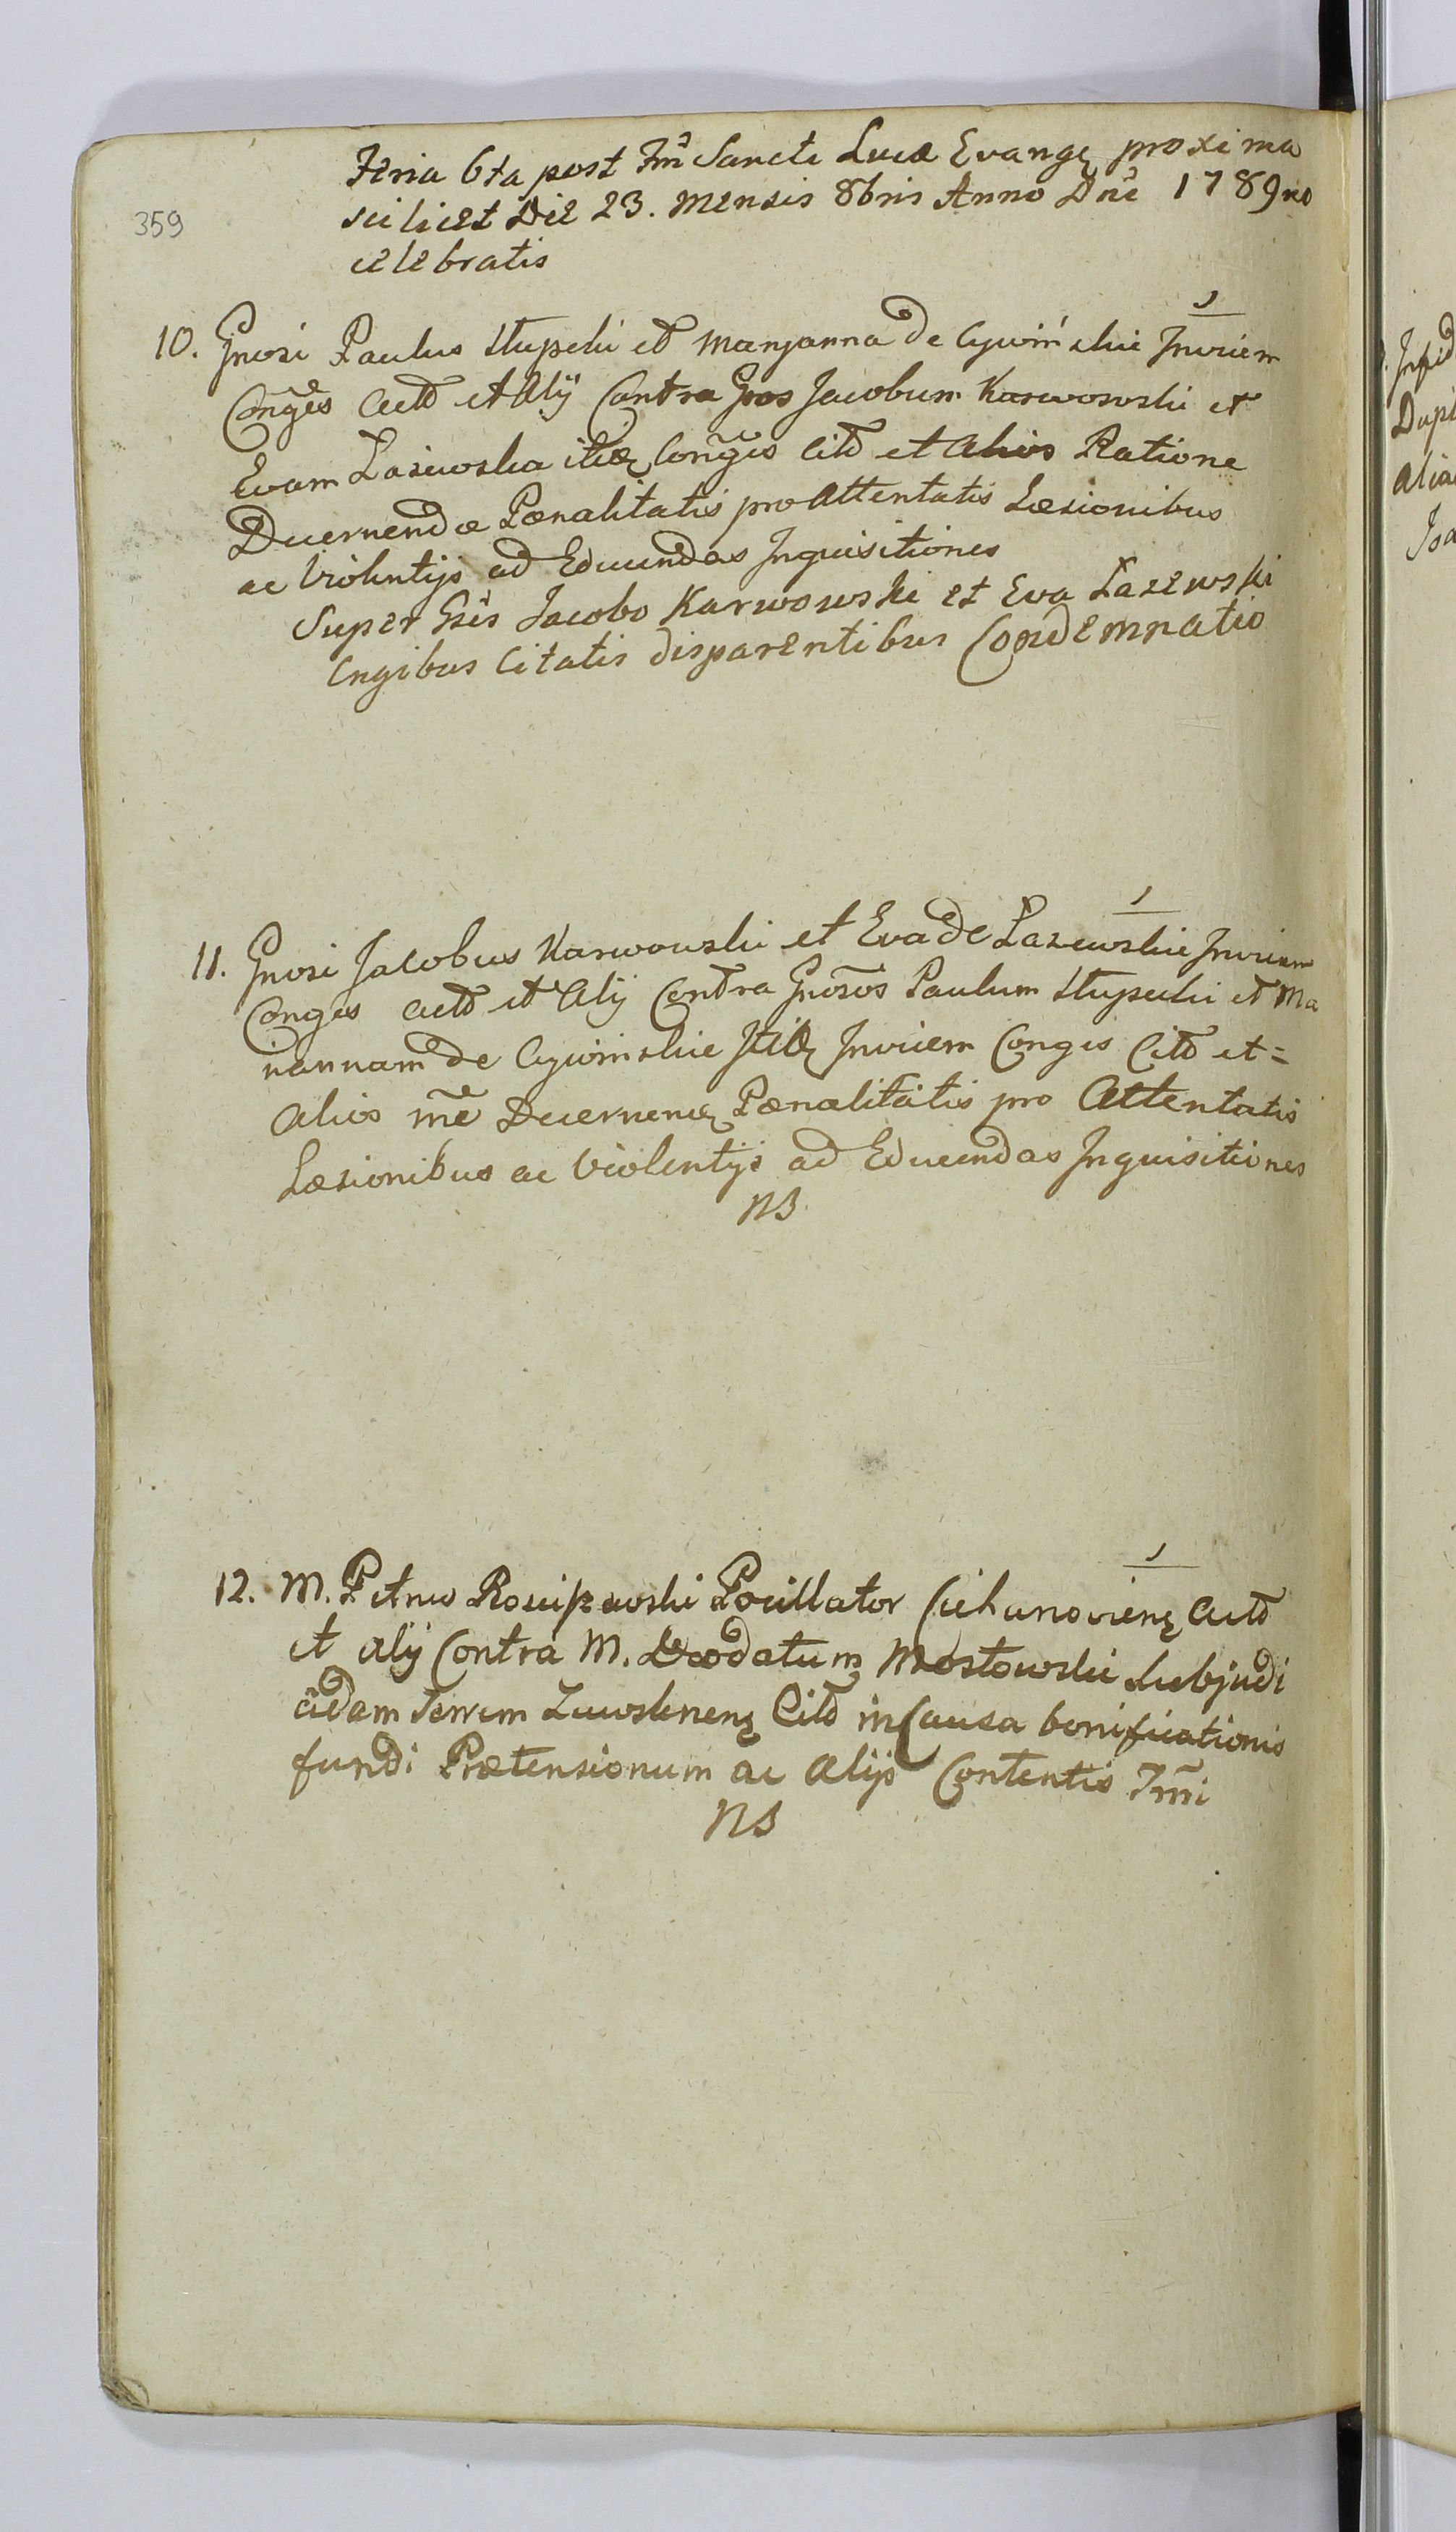 359
Feria 6ta post Fm̃ Sancti Lucæ Evangę proxima
scilicet Die 23. Mensis 8bris Anno Dni 1789no
celebratis
1
10. Gnosi Paulus Stupecki et Maryanna de Cywińskie Invicem
Conges Actō et Alij Contra Gnos Jacobum Karwowski et
Evam Łazewska itię Conges Citō et Alios Ratione
Decernendæ Pœnalitatis pro Attentatis Læsionibus
ac Violentijs ad Educendas Inquisitiones
Super Gsis Jacobo Karwowski et Eva Łazewski
Cngibus Citatis disparentibus Condemnatio
1
11. Gnosi Jacobus Karwowski et Eva de Łazewskie Invicem
Conges Actō et Alij Contra Gnosos Paulum Stupecki et Ma
riannam de Cywinskie Itię Invicem Conges Citō et=
Alios rñe Decernenę Pœnalitatis pro Attentatis
Læsionibus ac Violentijs ad Educendas Inquisitiones
NS
1
12. M. Petrus Pocillator Ciechanovienę Actō
et Alij Contra M. Deodatum Mostowski Subjudi
cem Citō in Causa bonificationis
fundi Prætensionum ac Alijs Contentis Tm̃i
NS
Dupl